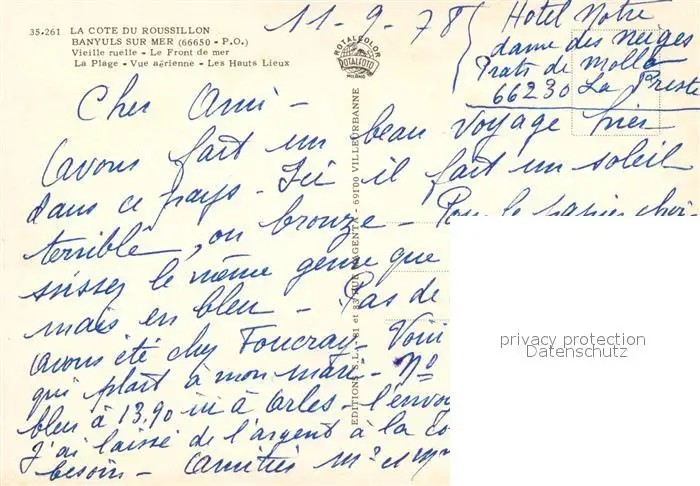 35-261 LA COTE DU ROUSSILLON
BANYULS SUR MER (66650 - P.O.)
Vieille ruelle - Le Front de mer
La Plage - Vue aérienne - Les Hauts Lieux
ROTALCOLOR
ROTALFOTO
MILANO
EDITIONS S.L. - 81 et 83 RUE MAGENTA - 69100 VILLEURBANNE
11-9-78
Hotel Notre
dame des neiges
Prats de Mollo
66230 La Preste
Cher Ami -
avons fait un beau voyage hier
dans ce pays - Ici il fait un soleil
terrible, on bronze - Pour le papier choi-
sissez le même genre que
mais en bleu - Pas de
avons été chez Foucray - Voici
qui plaît à mon mari - No
bleu à 13,90 à Arles - l'envoy
J'ai laissé de l'argent à la co
besoin - Amitiés Mr et Mm
privacy protection
Datenschutz